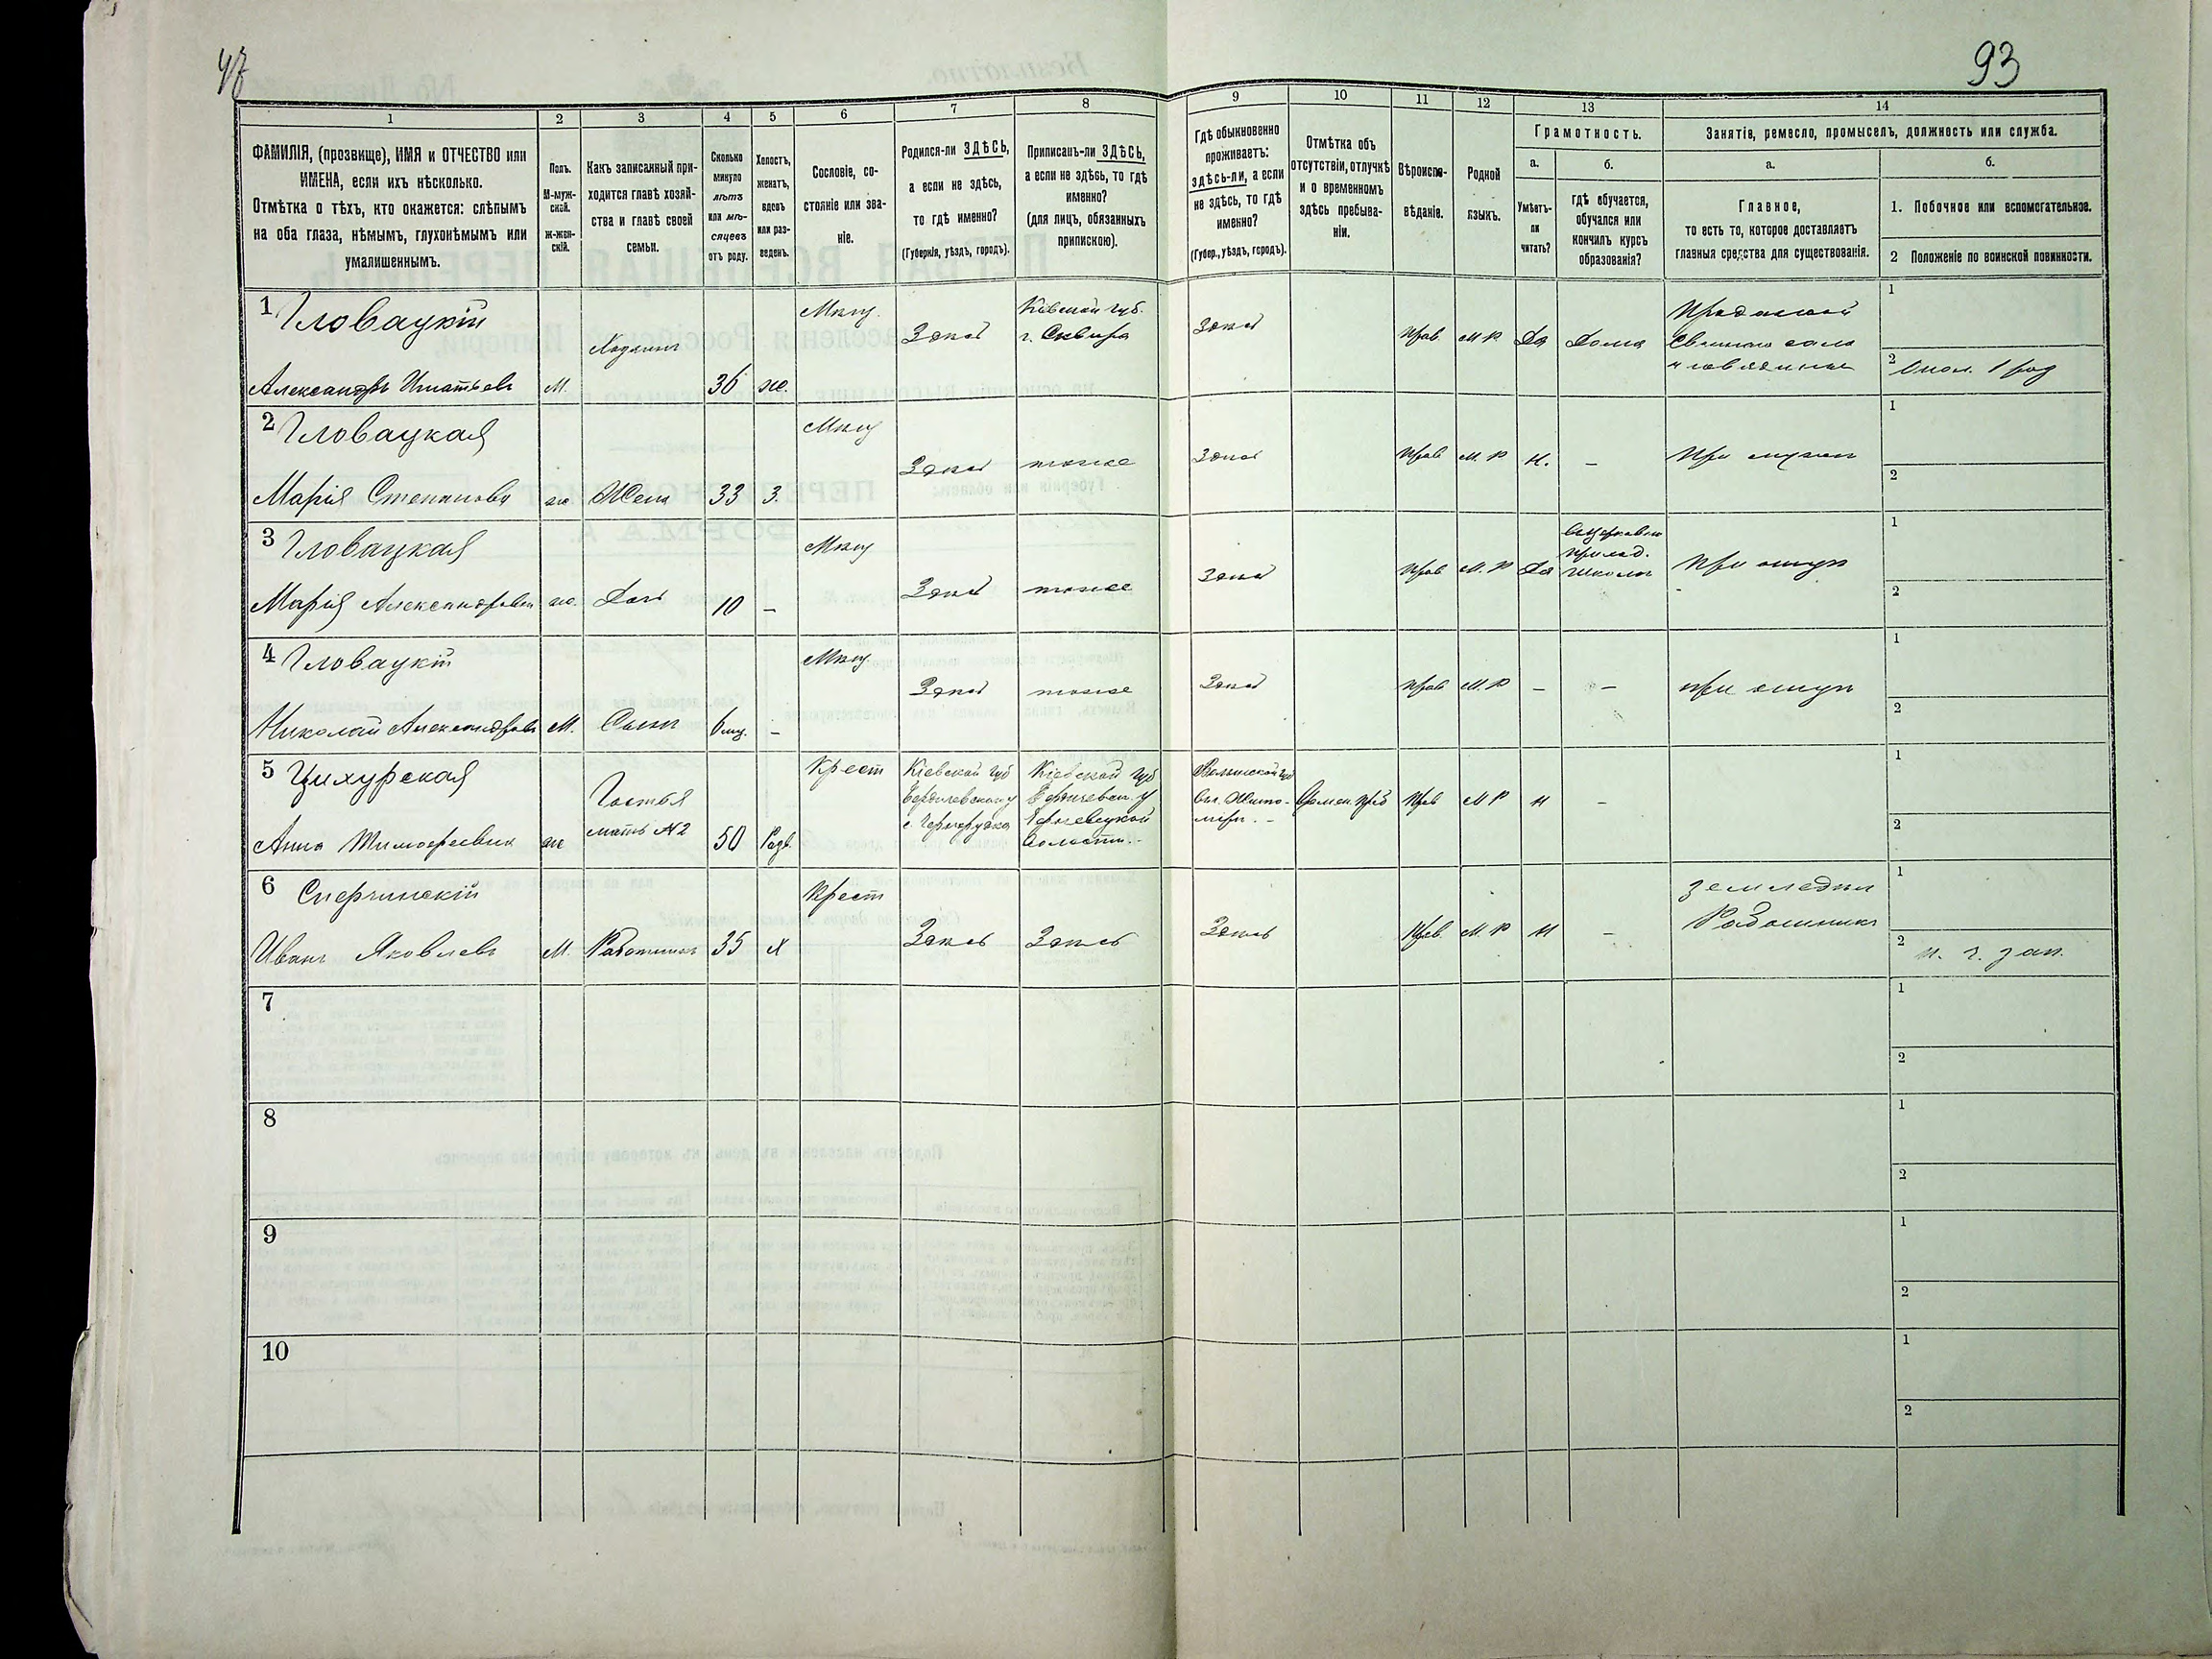 93
1 2 3 4 5 6 7 8 9 10 11 12 13 14
ФАМИЛІЯ, (прозвище), ИМЯ и ОТЧЕСТВО или
ИМЕНА, если ихъ нѣсколько.
Отмѣтка о тѣхъ, кто окажется: слѣпымъ
на оба глаза, нѣмымъ, глухонѣмымъ или
умалишеннымъ.
Полъ.
М-муж-
ской.
Ж-жен-
скій.
Какъ записанный при-
ходится главѣ хозяй-
ства и главѣ своей
семьи.
Сколько
минуло
лѣтъ
или мѣ-
сяцевъ
отъ роду.
Холостъ,
женатъ,
вдовъ
или раз-
веденъ.
Сословіе, со-
стояніе или зва-
ніе.
Родился-ли ЗДѢСЬ,
а если не здѣсь,
то гдѣ именно?
(Губернія, уѣздъ, городъ).
Приписанъ-ли ЗДѢСЬ,
а если не здѣсь, то гдѣ
именно?
(для лицъ, обязанныхъ
припискою).
Гдѣ обыкновенно
проживаетъ:
здѣсь-ли, а если
не здѣсь, то гдѣ
именно?
(Губер., уѣздъ, городъ).
Отмѣтка объ
отсутствіи, отлучкѣ
и о временномъ
здѣсь пребыва-
ніи.
Вѣроиспо-
вѣданіе.
Родной
языкъ.
Грамотность.
а.
Умѣетъ-
ли
читать?
б.
гдѣ обучается,
обучался или
кончилъ курсъ
образованія?
Занятіе, ремесло, промыселъ, должность или служба.
а.
Главное,
то есть то, которое доставляетъ
главныя средства для существованія.
б.
1. Побочное или вспомогательное.
2 Положеніе по воинской повинности.
1 Гловацкій
Александръ Игнатьевъ
М.
Хозяинъ
36
ж.
Мѣщ.
Здѣсь
Кіевской губ.
г. Сквира
Здѣсь
Прав.
М Р
Да
Дома
Продажей
свиного сала
1
2 Опол. 1 раз
2 Гловацкая
Марія Степановна
ж
Жена
33
З.
Мѣщ
Здѣсь
тоже
Здѣсь
Прав
М. Р
Н.
–
При мужѣ
1
2
3 Гловацкая
Марія Александровна
ж.
Дочь
10
–
Мѣщ
Здѣсь
тоже
Здѣсь
Прав
М. Р
Да
школѣ
При отцѣ
1
2
4 Гловацкій
Николай Александровъ
М.
Сынъ
6 мѣц.
–
Мѣщ.
Здѣсь
тоже
Здѣсь
Прав
М. Р
–
–
при отцѣ
1
2
5 Цихурская
Анна Тимофеевна
ж
Гостья
мать №2
50
Разв.
Крест
Кіевской губ
Бердичевскаго у
с. Чернорудка
Кіевской губ
Бердичевск. у
волости.
Волынской губ
Времен. преб
Прав
М Р
Н
–
1
2
6
Иванъ Яковлевъ
М.
Работникъ
35
Х
Крест
Здѣсь
Здѣсь
Здѣсь
Прав.
М. Р
Н
–
Работникъ
1
2
7
1
2
8
1
2
9
1
2
10
1
2